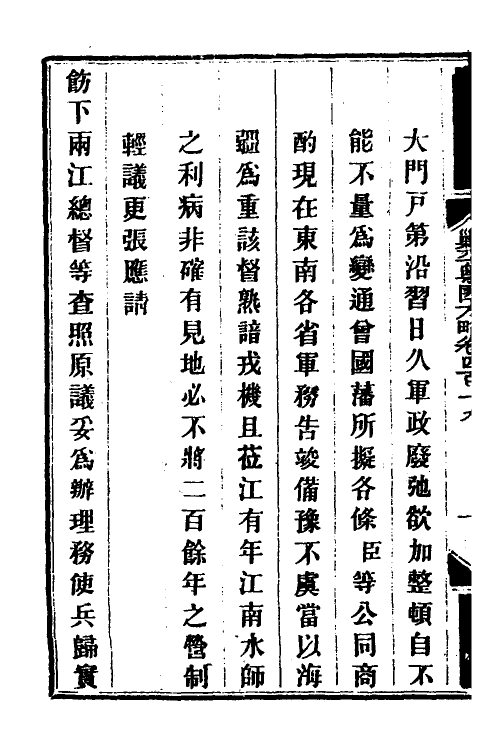 大門戸第沿習日久軍政廢弛欲加整頓自不
能不量爲變通曾國藩所擬各條臣等公同商
酌現在東南各省軍務告竣備豫不虞當以海
疆爲重該督熟諳戎機且莅江有年江南水師
之利病非確有見地必不將二百餘年之營制
輕議更張應請
飭下兩江總督等查照原議妥爲辦理務使兵歸實